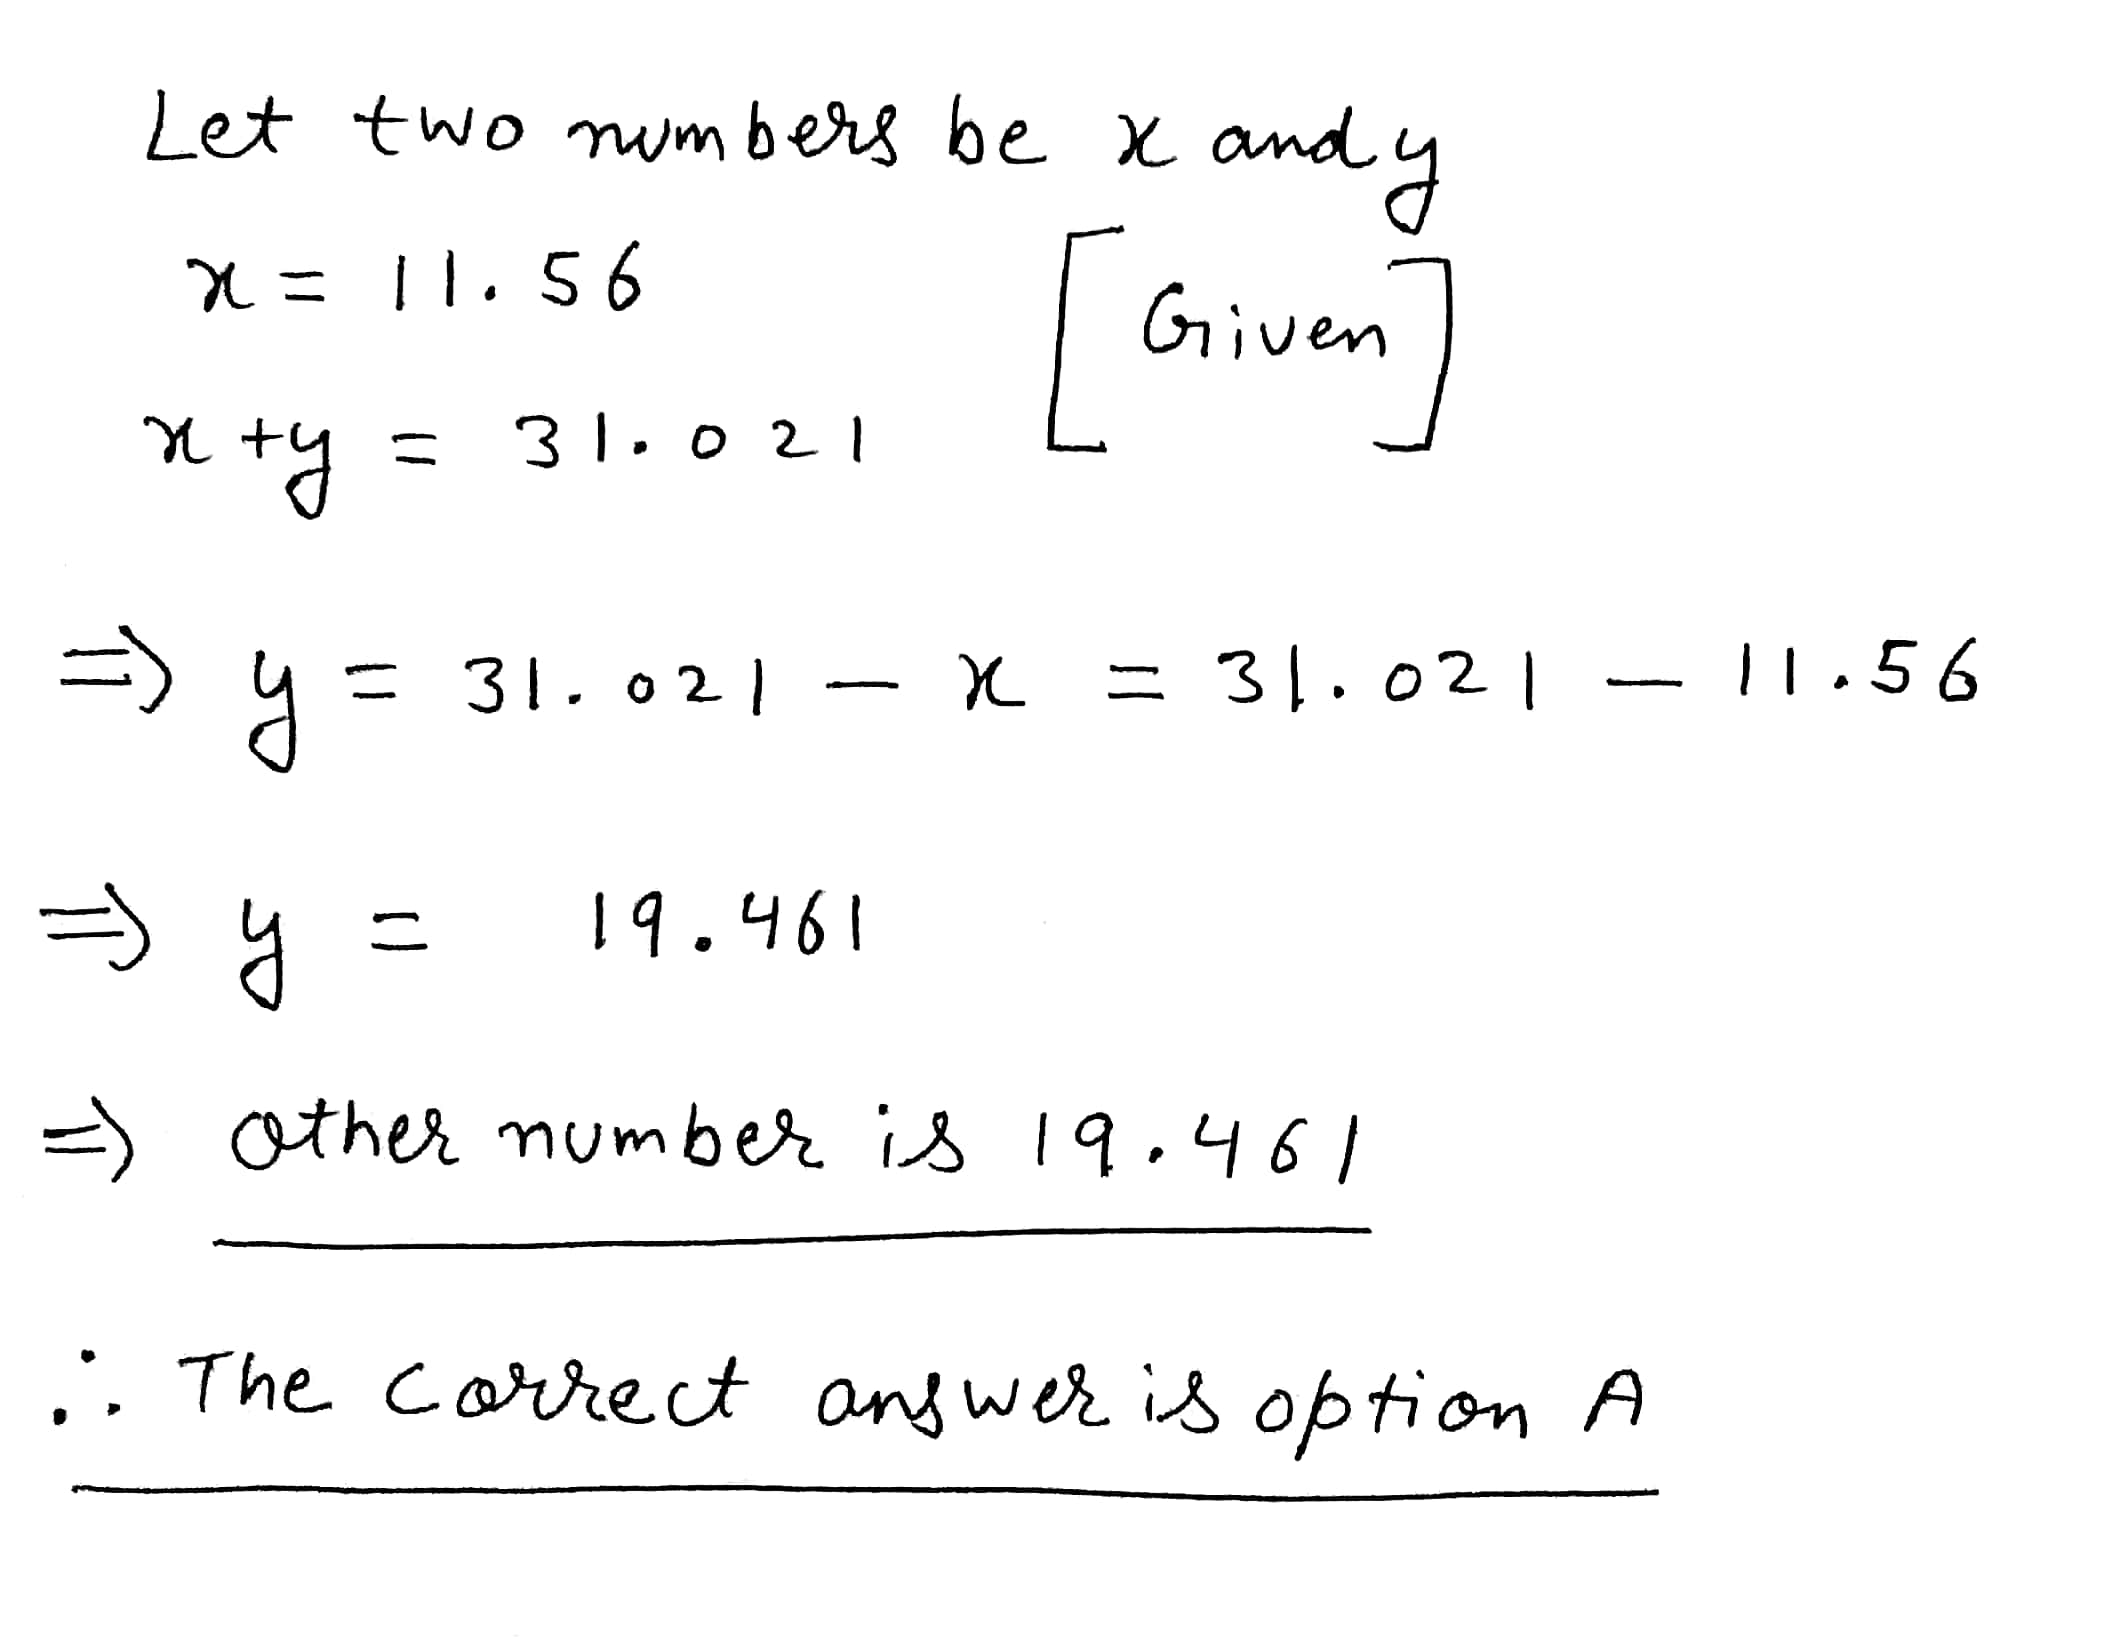 Let two numbers be x and y
x = 11.56
[Given]
x + y = 31.021
⇒ y = 31.021 - x = 31.021 - 11.56
⇒ y = 19.461
⇒ other number is 19.461
∴ The correct answer is option A